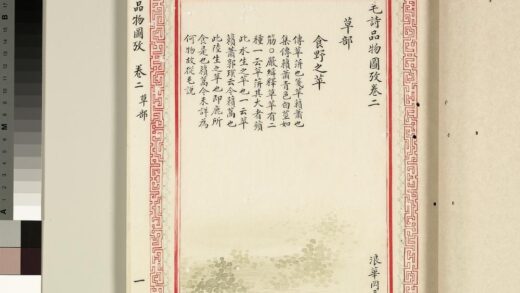 毛詩品物圖攷卷二
浪華岡
草部
食野之苹
傳苹蓱也箋苹藾蕭也
集傳藾蕭青色白莖如
筯○嚴緝釋草苹有二
種一云苹蓱其大者蘋
此水生之苹也一云苹
藾蕭郭璞云今藾蒿也
此陸生之苹也即鹿所
食是也藾蒿今未詳為
何物故從毛説
品物圖攷 卷二 草部
一
M
A